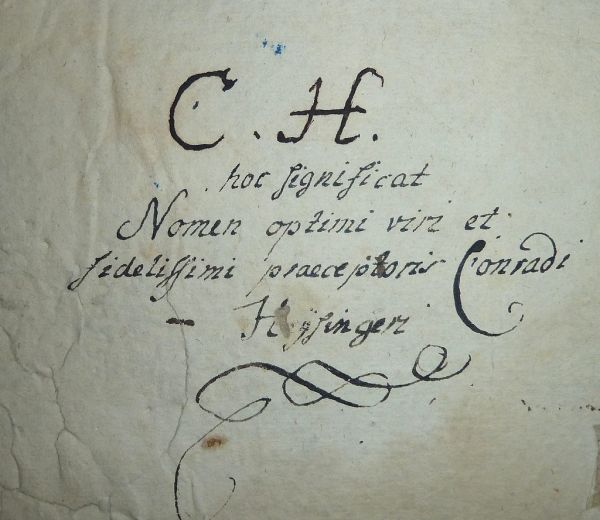 C. H.
hoc significat
Nomen optimi viri et
fidelissimi praeceptoris Conradi